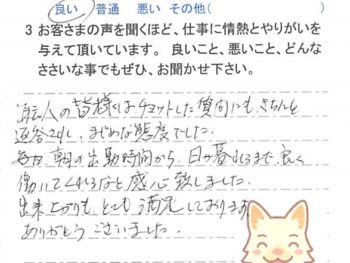 良い 普通 悪い その他(
3 お客さまの声を聞くほど、仕事に情熱とやりがいを
与えて頂いています。 良いこと、悪いこと、どんな
ささいな事でもぜひ、お聞かせ下さい。
人の皆様はチョットした質問にも、きちんと
返答され、まじめな態度でした。
毎日、朝の出勤時間から、日が暮れるまで、良く
働いてくれるなと感心致しました。
出来上がりも、とても満足しております
ありがとうございました。